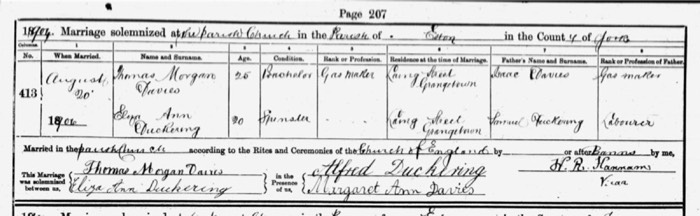 Page 207
1904. Marriage solemnized at the parish Church in the Parish of Eston in the County of York
Columns 1 2 3 4 5 6 7 8
No. When Married. Name and Surname. Age. Condition. Rank or Profession. Residence at the time of Marriage. Father's Name and Surname. Rank or Profession of Father.
413 August 20 1904 Thomas Morgan Davies 25 Bachelor Gas maker Laing Street Grangetown Isaac Davies Gas maker
Eliza Ann Duckering 20 Spinster Laing Street Grangetown Samuel Duckering Labourer
Married in the parish Church according to the Rites and Ceremonies of the Church of England by or after Banns by me,
This Marriage was solemnized between us, Thomas Mogan Davies Eliza Ann Duckering in the Presence of us, Alfred Duckering Margaret Ann Davies H. R. Hannam Vicar